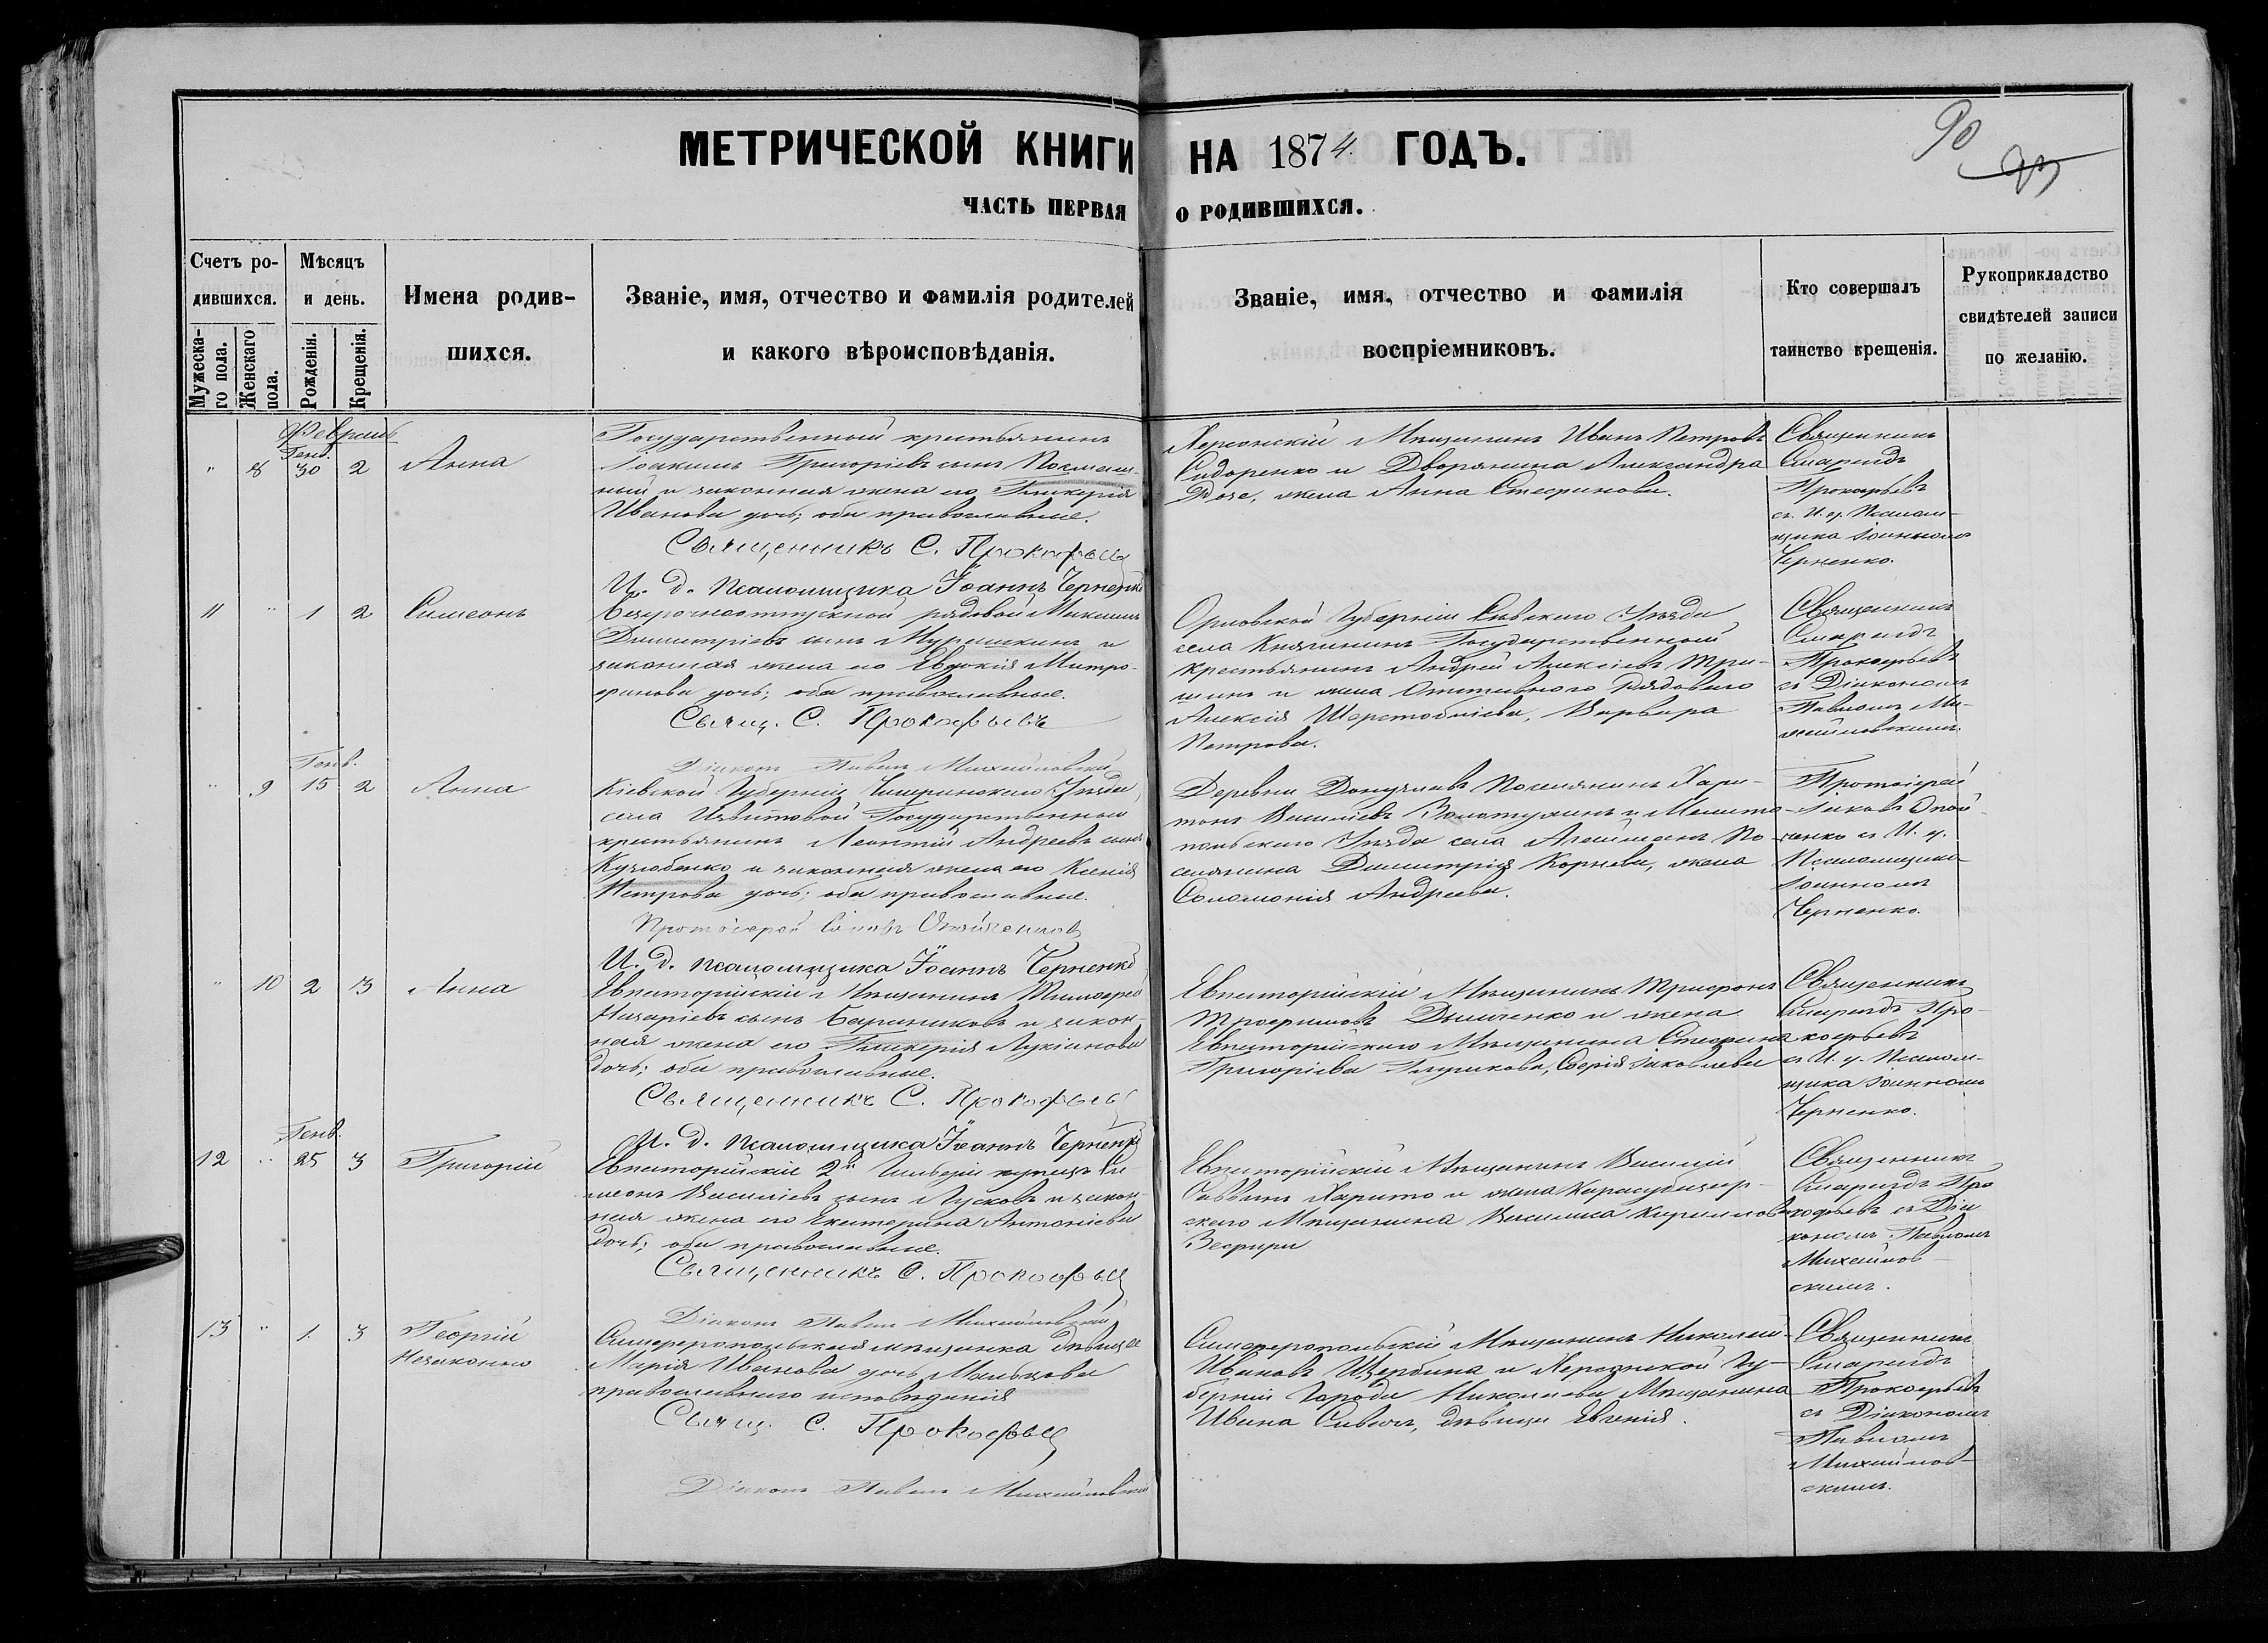 МЕТРИЧЕСКОЙ КНИГИ НА 1874. ГОДЪ.
90
93
ЧАСТЬ ПЕРВАЯ О РОДИВШИХСЯ.
Счетъ ро-
дившихся.
Мужеска-
го пола.
Женскаго
пола.
Мѣсяцъ
и день.
Рожденія.
Крещенія.
Имена родив-
шихся.
Званіе, имя, отчество и фамилія родителей
и какого вѣроисповѣданія.
Званіе, имя, отчество и фамилія
воспріемниковъ.
Кто совершалъ
таинство крещенія.
Рукоприкладство
свидѣтелей записи
по желанію.
Февраль
Генв.
" 8 30 2 Анна
Государственный крестьянинъ
Іоакимъ Григоріевъ сынъ
и законная жена его Гликерія
Иванова дочь; оба православные.
Священникъ С. Прокофьевъ
И. д. псаломщика Іоаннъ Черненко
Херсонскій Мѣщанинъ Иванъ Петровъ
Сидоренко и Дворянина Александра
Розе, жена Анна Стефанова.
Священникъ
Смарагдъ
Прокофьевъ
съ И. д. Псалом-
щика Іоанномъ
Черненко.
11 " 1 2 Симеонъ
Безсрочноотпускной рядовой Максимъ
Димитріевъ сынъ Мурашкинъ и
законная жена его Евдокія Митро-
фанова дочь; оба православные.
Свящ. С. Прокофьевъ
Діаконъ Павелъ Михайловскій
Орловской Губерніи Сѣвскаго Уѣзда
села Княгинина Государственный
крестьянинъ Андрей Алексіевъ Три-
шинъ и жена Отставного Рядового
Алексія Шерстобитова, Варвара
Петрова.
Священникъ
Смарагдъ
Прокофьевъ
съ Діакономъ
Павломъ Ми-
хайловскимъ.
Генв.
" 9 15 2 Анна
Кіевской Губерніи Чигиринскаго Уѣзда,
села Государственный
крестьянинъ Леонтій Андреевъ сынъ
Кузюбенко и законная жена его Ксенія
Петрова дочь; оба православные.
Протоіерей Іаковъ
И. д. псаломщика Іоаннъ Черненко
Деревни Поселянинъ Хари-
тонъ Васильевъ Золотухинъ и Мелито-
польскаго Уѣзда села По-
селянина Димитрія Корнева, жена
Соломонія Андреева.
Протоіерей
Іаковъ
съ И. д.
Псаломщика
Іоанномъ
Черненко.
" 10 2 3 Анна
Евпаторійскій Мѣщанинъ Тимофей
Назаріевъ сынъ Баранниковъ и закон-
ная жена его Гликерія Лукіанова
дочь; оба православные.
Священникъ С. Прокофьевъ
И. д. псаломщика Іоаннъ Черненко
Евпаторійскій Мѣщанинъ Трифонъ
Трофимовъ и жена
Евпаторійскаго Мѣщанина Стефана
Григоріева Глушкова, Софія Іаковлева
Священникъ
Смарагдъ Про-
кофьевъ
съ И. д. Псалом-
щика Іоанномъ
Черненко.
Генв.
12 " 25 3 Григорій
Евпаторійскій 2й Гильдіи купецъ Си-
меонъ Васильевъ сынъ Лусковъ и закон-
ная жена его Екатерина Антоніева
дочь; оба православные.
Священникъ С. Прокофьевъ
Діаконъ Павелъ Михайловскій
Евпаторійскій Мѣщанинъ Василій
Саввинъ Харито и жена Карасубазар-
скаго Мѣщанина Василиса Кириллова
Зефири
Священникъ
Смарагдъ Про-
кофьевъ съ Діа-
кономъ Павломъ
Михайлов-
скимъ.
13 " 1. 3 Георгій
Незаконно
Симферопольская мѣщанка дѣвица
Марія Иванова дочь Мальцова
православнаго исповѣданія
Свящ. С. Прокофьевъ
Діаконъ Павелъ Михайловскій
Симферопольскій Мѣщанинъ Николай
Ивановъ Щербина и Херсонской Гу-
берніи Города Николаева Мѣщанина
Ивана дѣвица Евгенія.
Священникъ
Смарагдъ
Прокофьевъ
съ Діакономъ
Павломъ
Михайлов-
скимъ.